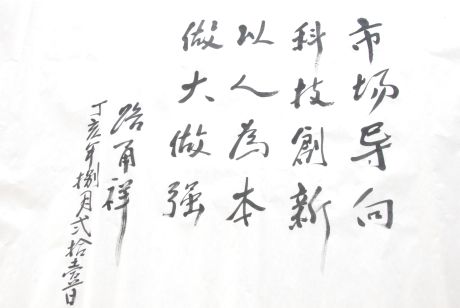 市场导向
科技創新
以人為本
做大做强
路甬祥
丁亥年捌月弍拾壹日